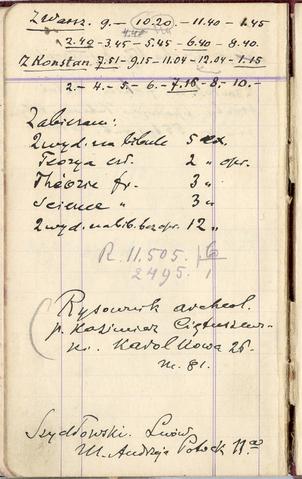 Z Warsz. 9.- 10.20.- 11.40 - 1.45
2.40 - 3.45 - 5.45 - 6.40 - 8.40.
Z Konstan. 7.51 - 9.15 - 11.04 - 12.04 - 1.15
2.- 4.- 5.- 6.- 7.15 - 8.- 10.-
Zabieram:
2 wyd. na bibule 5 ex.
Teorya 2 " opr.
Théorie fr. 3 "
Science " 3 "
2 wyd. na bib. bez opr. 12 "
R. 11.505.
2495.
Rysownik archeol.
p. Kazimierz
Karolkowa 26.
m. 81.
Szydłowski. Lwów
Ul. Andrzeja Potock 11a